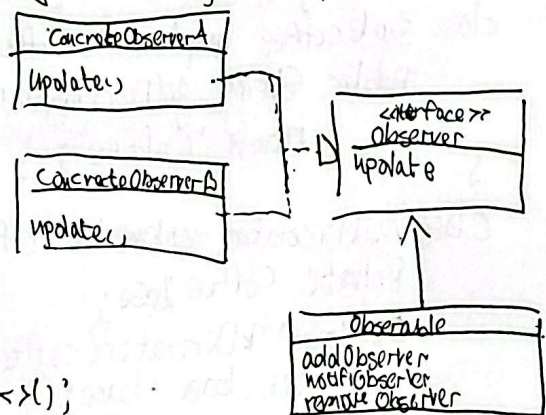 ConcreteObserverA
update()
ConcreteObserverB
update()
<<interface>>
Observer
update
Observable
addObserver
notifiObserver
remove Observer
<>();